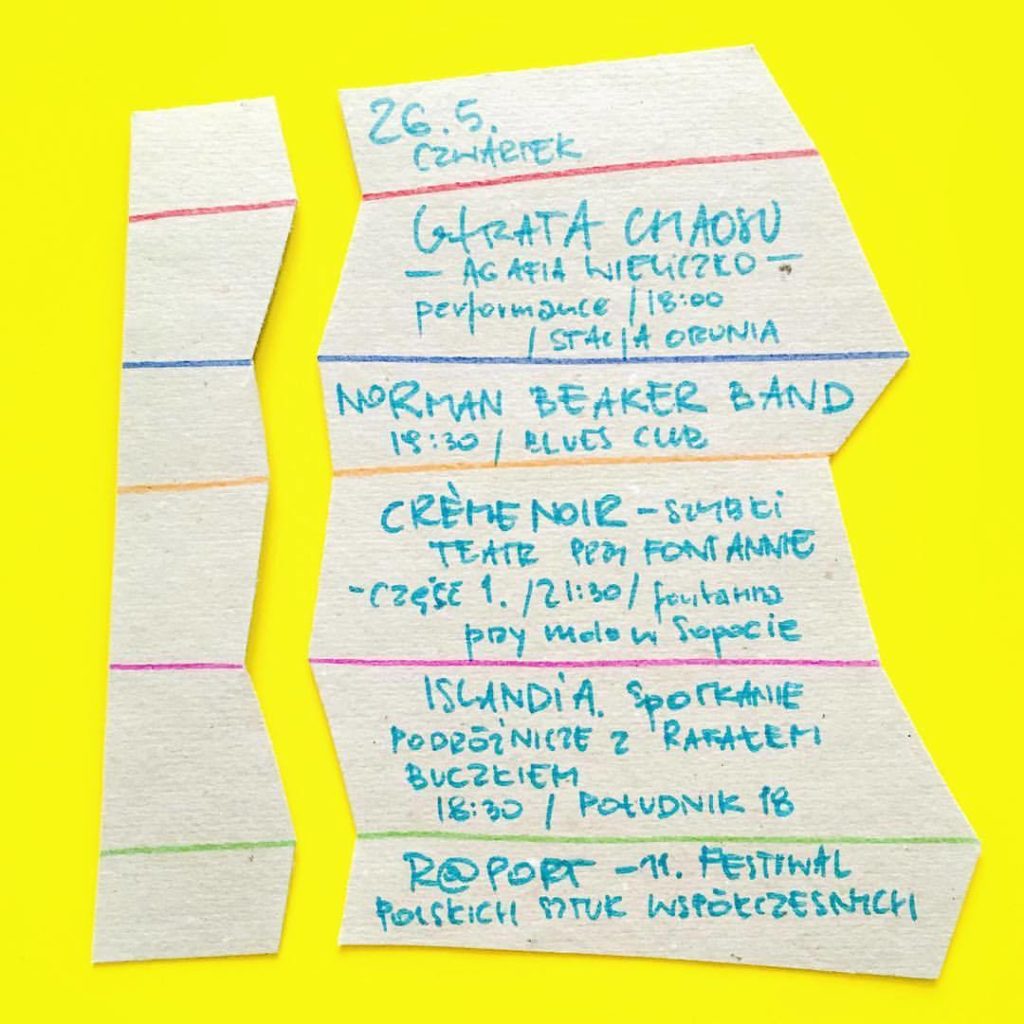 26.5.
CZWARTEK
UTRATA CHAOSU
— AGAFIA WIELICZKO —
performance / 18:00
/ STACJA ORUNIA
NORMAN BEAKER BAND
19:30 / BLUES CLUB
CRÈME NOIR - SZYBKI
TEATR PRZY FONTANNIE
- CZĘŚĆ 1. / 21:30 / fontanna
przy molo w Sopocie
ISLANDIA. SPOTKANIE
PODRÓŻNICZE Z RAFAŁEM
BUCZKIEM
18:30 / POŁUDNIK 18
R@PORT - 11. FESTIWAL
POLSKICH SZTUK WSPÓŁCZESNYCH